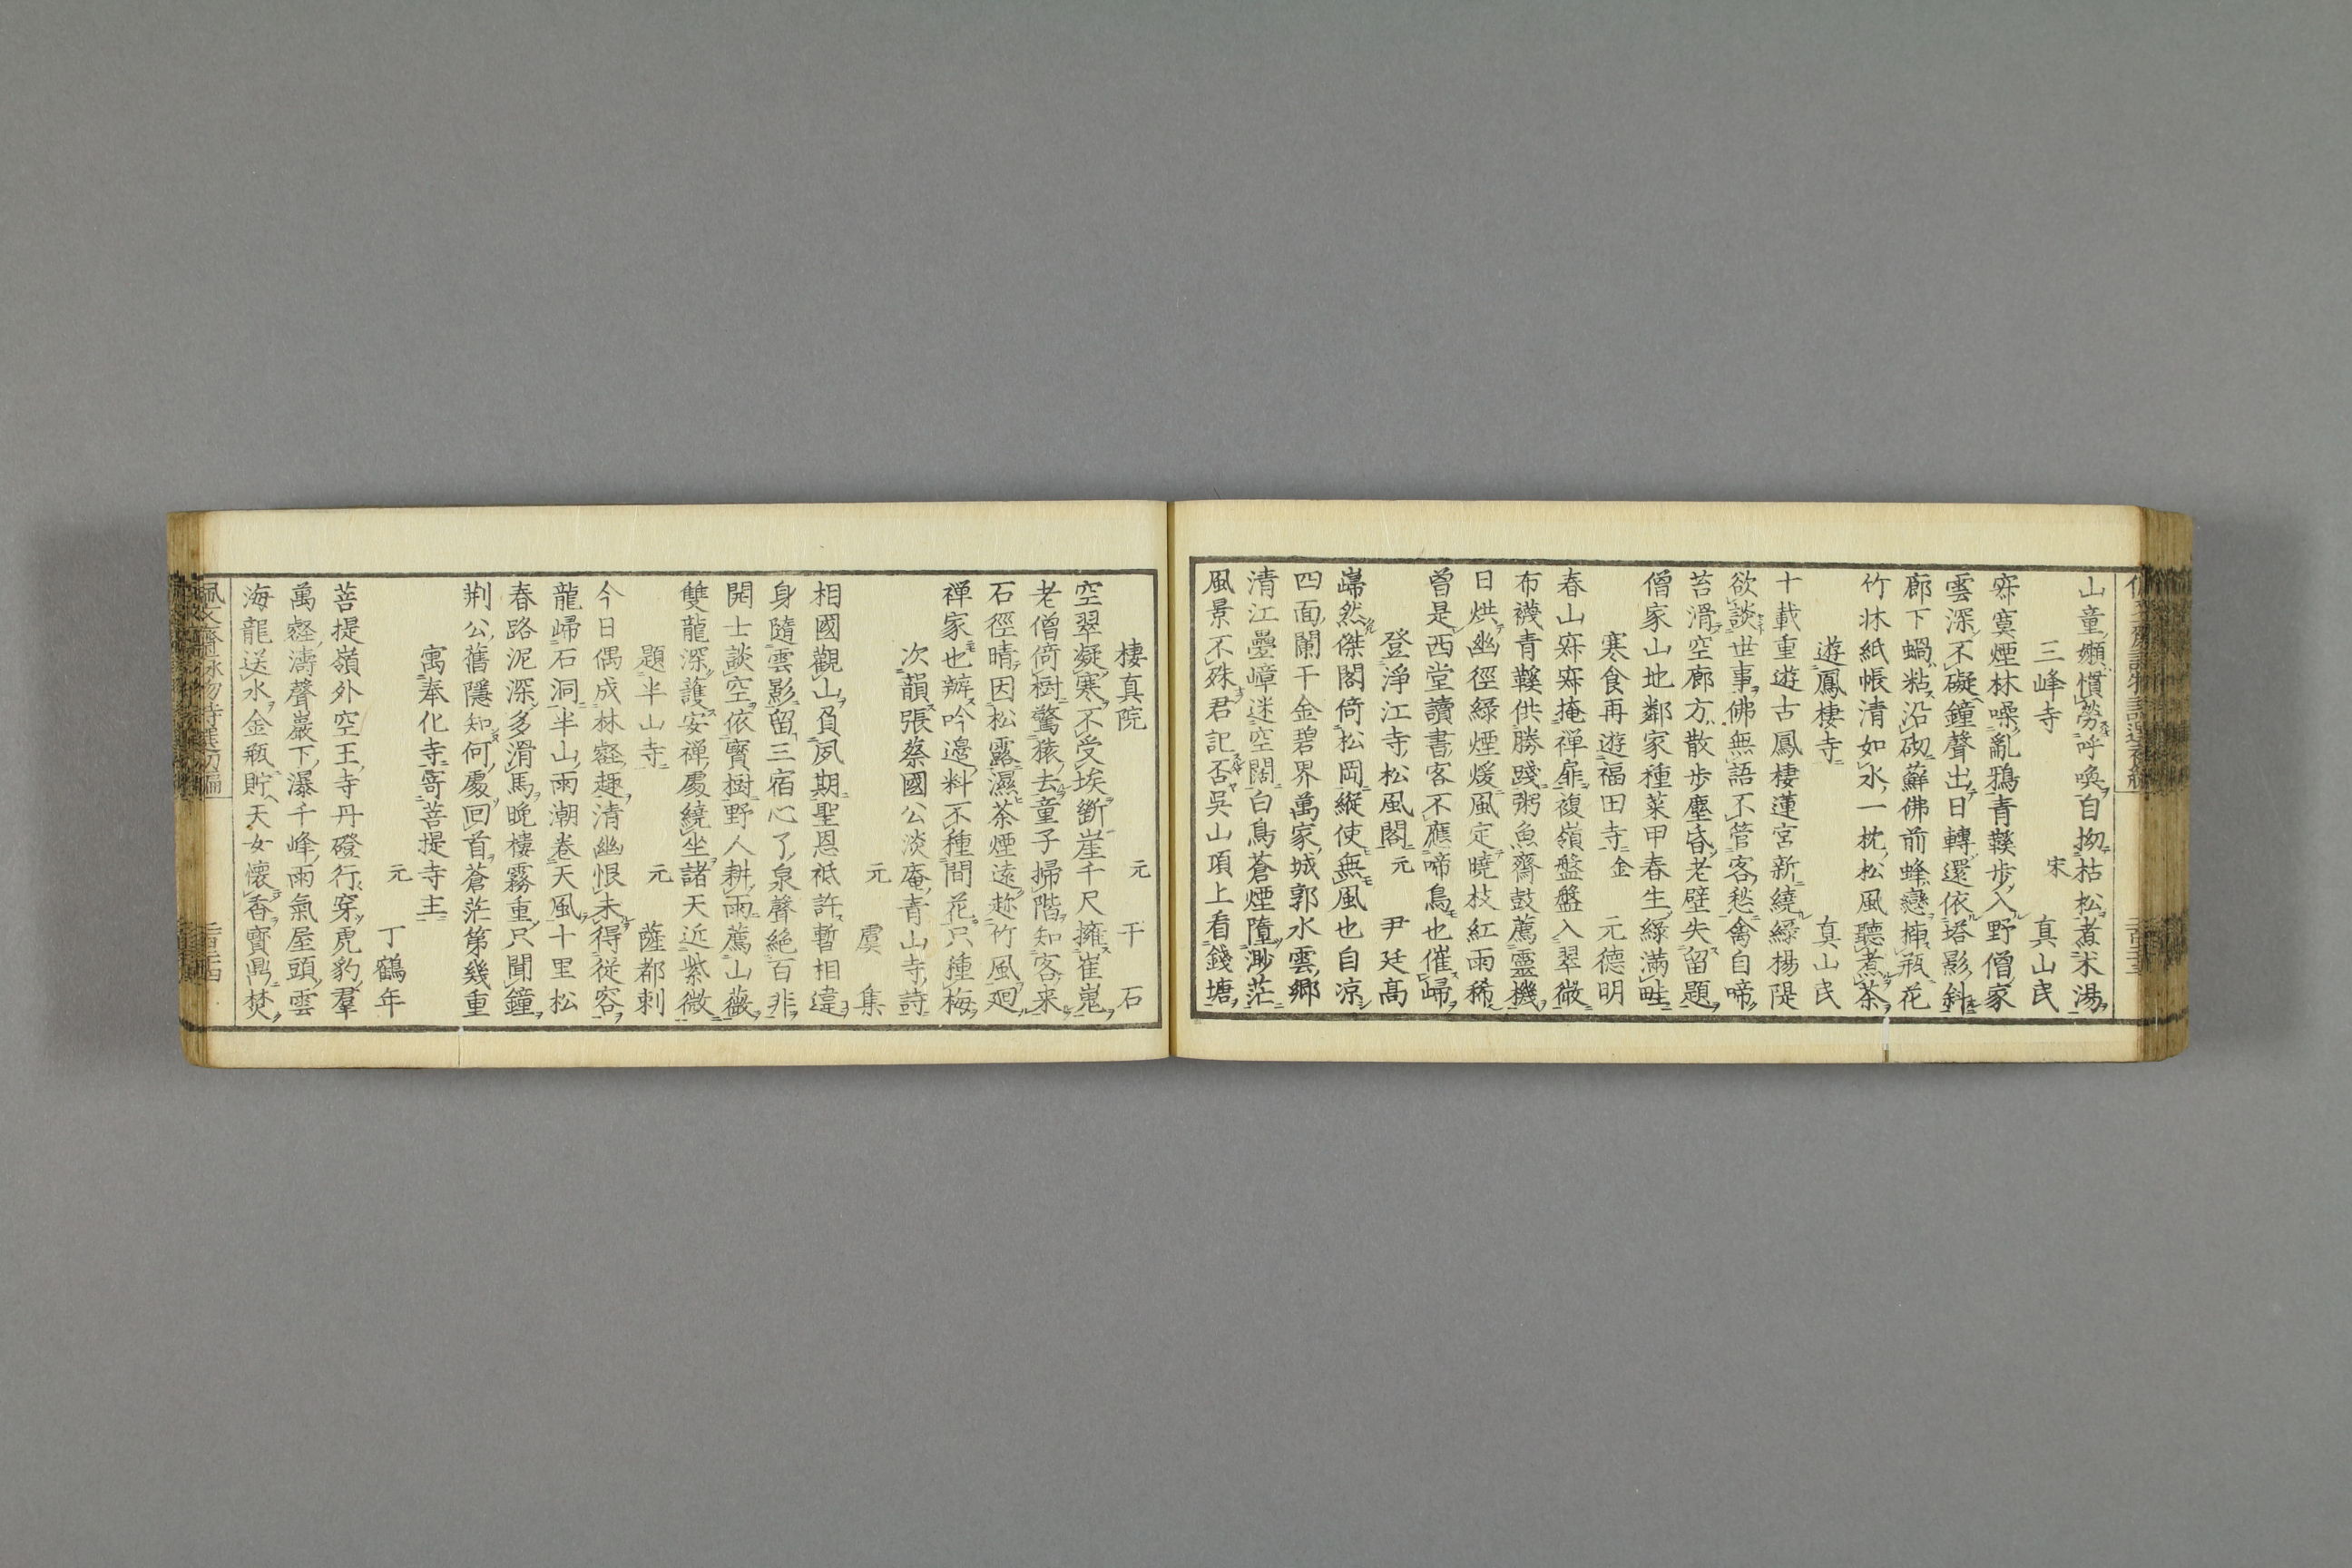 山童嬾慣勞呼喚自拗枯松煮米湯
三峰寺 宋 真山民
寂寞煙林噪亂鴉青鞵步入野僧家
雲深不礙鐘聲出日轉還依塔影斜
廊下蝸粘沿砌蘚佛前蜂戀插瓶花
竹牀紙帳清如水一枕松風聽煮茶
遊鳳棲寺 真山民
十載重遊古鳳棲蓮宮新繞綠楊隄
欲談世事佛無語不管客愁禽自啼
苔滑空廊方散步塵昏老壁失留題
僧家山地鄰家種菜甲春生綠滿畦
寒食再遊福田寺 金 元德明
春山寂寂掩禪扉複嶺盤盤入翠微
布襪青鞵供勝踐粥魚齋鼓薦靈機
日烘幽徑綠煙煖風定曉枝紅雨稀
曾是西堂讀書客不應啼鳥也催歸
登淨江寺松風閣 元 尹廷高
巋然傑閣倚松岡縱使無風也自凉
四面闌干金碧界萬家城郭水雲鄉
清江疊嶂迷空闊白鳥蒼煙墮渺茫
風景不殊君記否吳山項上看錢塘
棲真院 元 于石
空翠凝寒不受埃斷崖千尺擁崔嵬
老僧倚樹驚猿去童子掃階知客来
石徑晴因松露濕茶煙遠趂竹風廻
禪家也辦吟邊料不種閒花只種梅
次韻張蔡國公淡庵青山寺詩
元 虞集
相國觀山負夙期聖恩祗許暫相違
身隨雲影留三宿心了泉聲絶百非
開士談空依寳樹野人耕雨薦山薇
雙龍深護安禪處繞坐諸天近紫微
題半山寺 元 薩都剌
今日偶成林壑趣清幽恨未得從容
龍歸石洞半山雨潮卷天風十里松
春路泥深多滑馬晚樓霧重只聞鐘
荆公舊隱知何處回首蒼茫第幾重
寓奉化寺寄菩提寺主
元 丁鶴年
菩提嶺外空王寺丹磴行穿虎豹羣
萬壑濤聲巖下瀑千峰雨氣屋頭雲
海龍送水金瓶貯天女懷香寳鼎焚
佩文齋詠物詩選初編